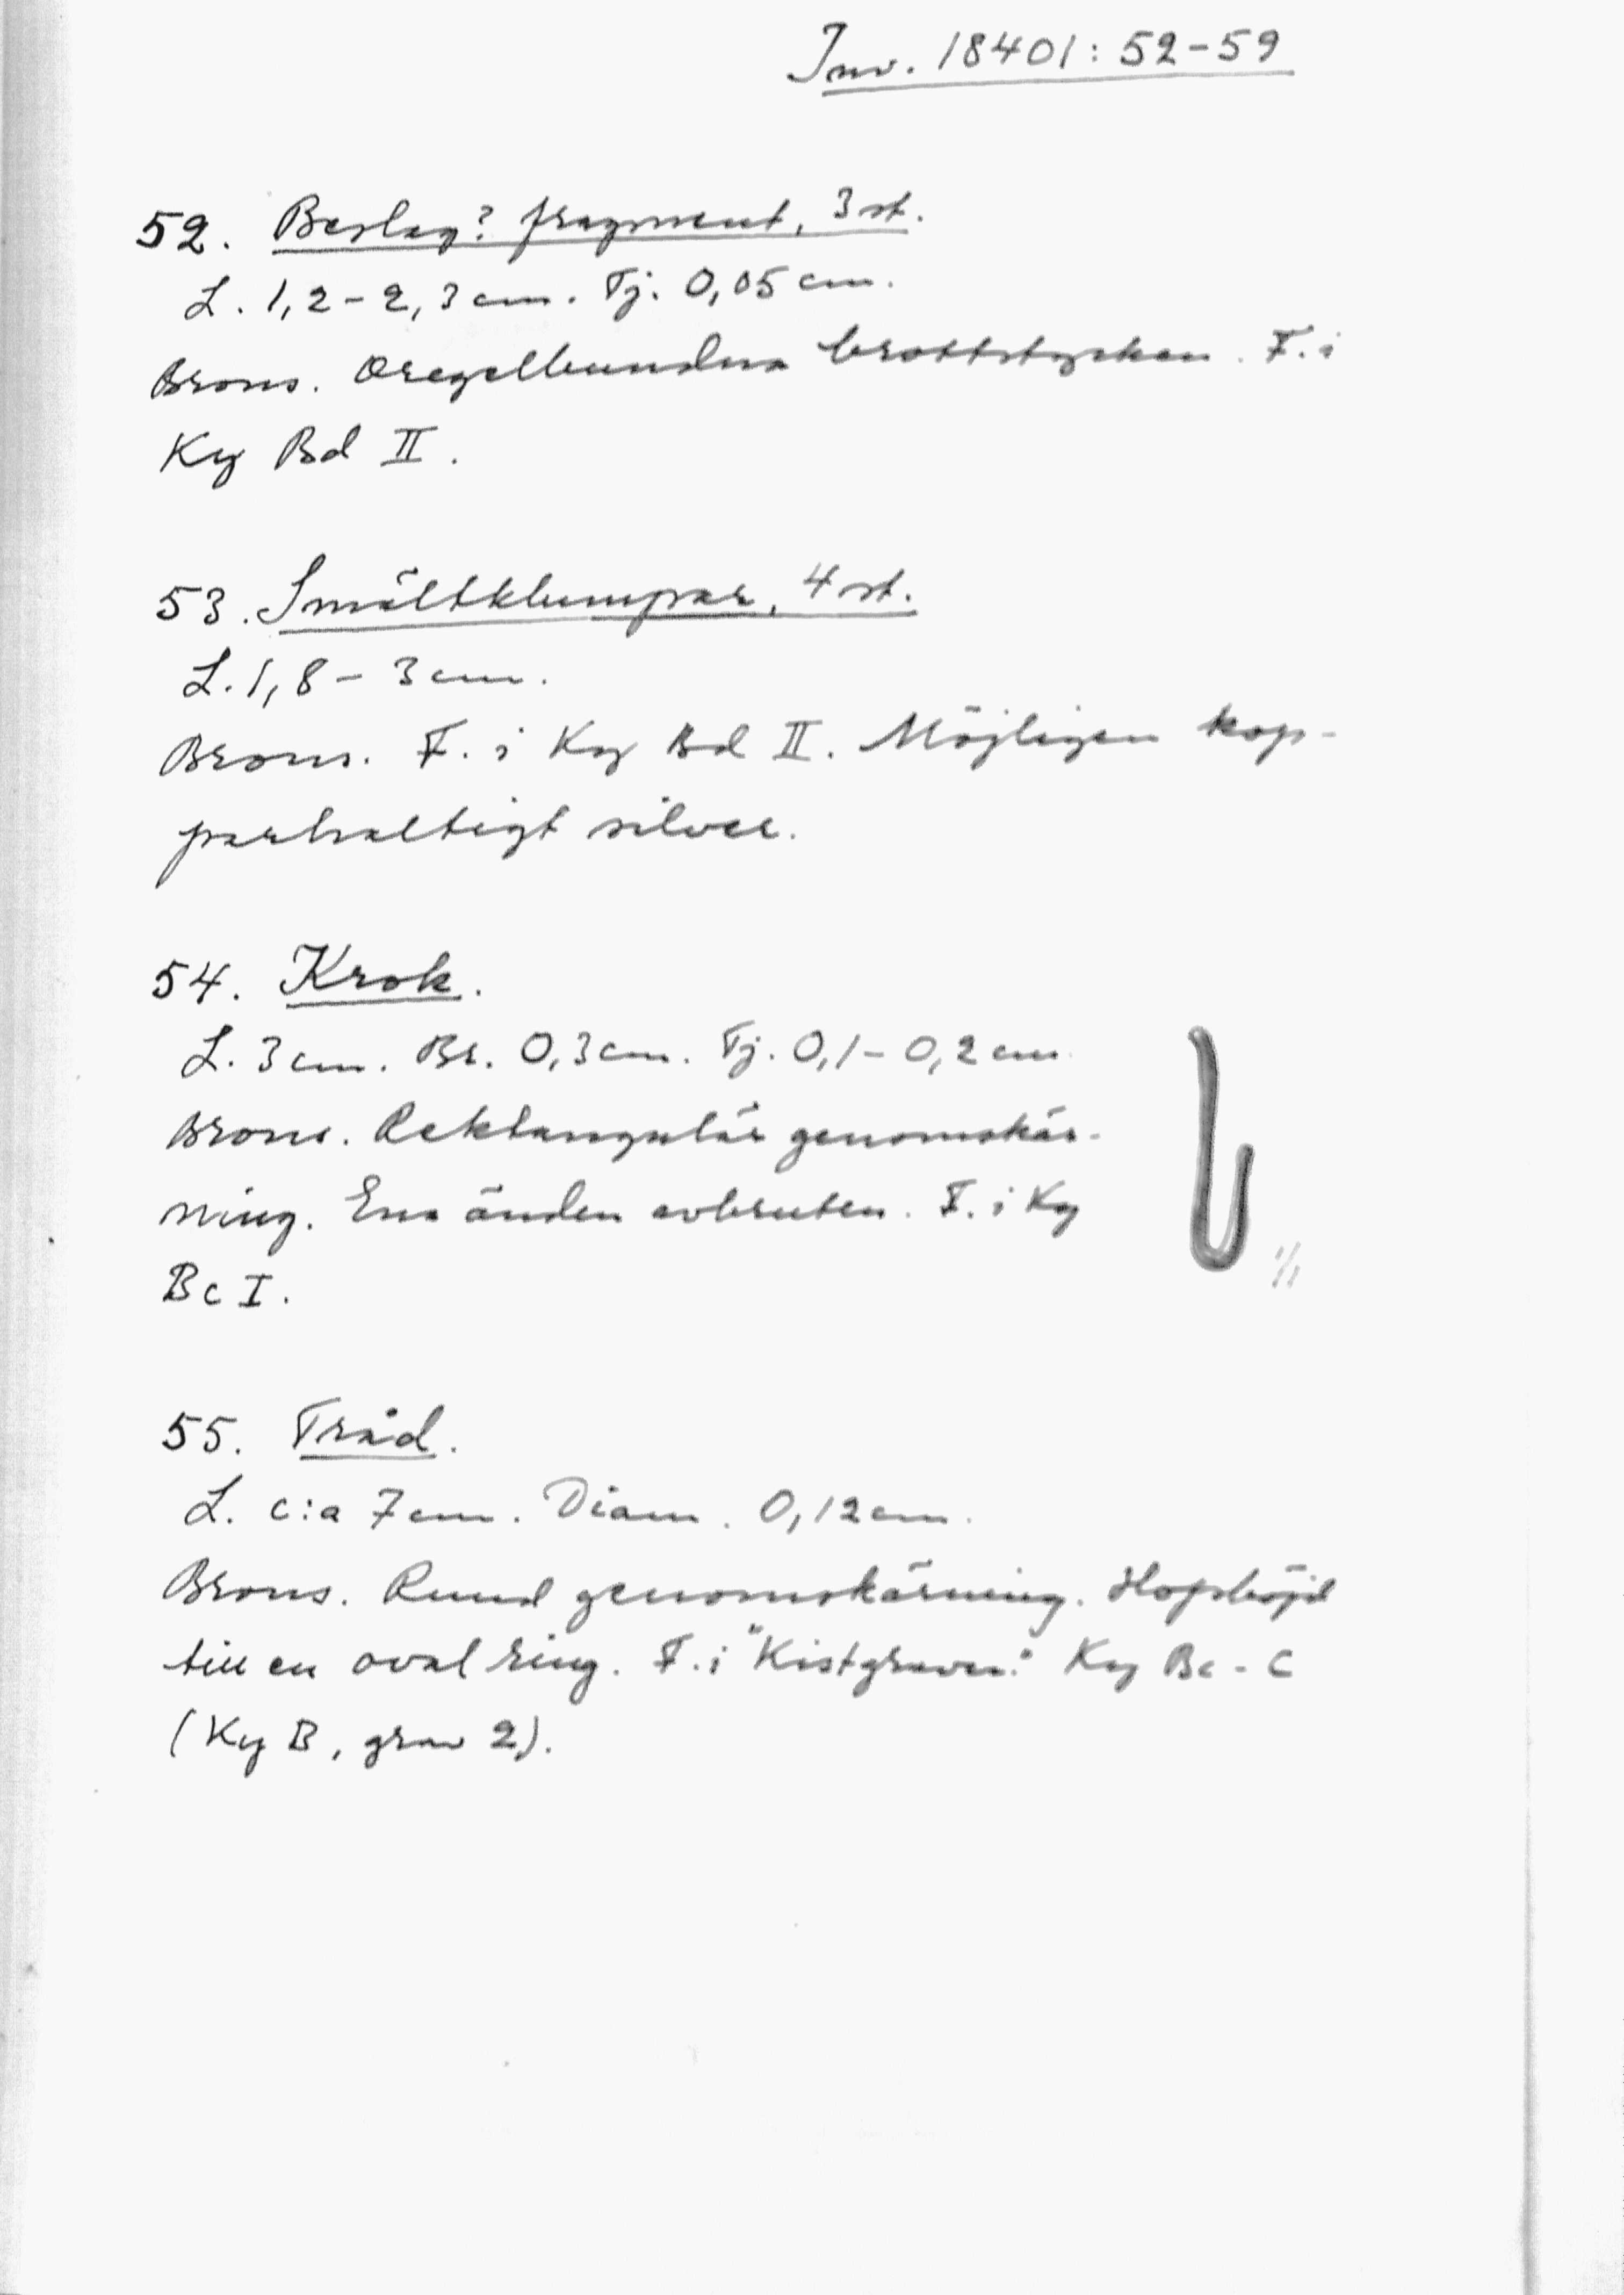 Inv. 18401: 52-59
52. Beslag? fragment, 3 st.
L. 1,2-2,3 cm. Tj. 0,05 cm.
Brons. Oregelbundna brottstycken. F. i
Ky Bd II.
53. Smältklumpar, 4 st.
L. 1,8-3 cm.
Brons. F. i Ky Bd II. Möjligen kop-
parhaltigt silver.
54. Krok.
L. 3 cm. Br. 0,3 cm. Tj. 0,1-0,2 cm.
Brons. Rektangulär genomskär-
ning. Ena änden avbruten. F. i Ky
Bc I.
1/1
55. Tråd.
L. c:a 7 cm. Diam. 0,12 cm.
Brons. Rund genomskärning. Hopböjd
till en oval ring. F. i "Kistgraven." Ky Bc-C
(Ky B, grav 2).